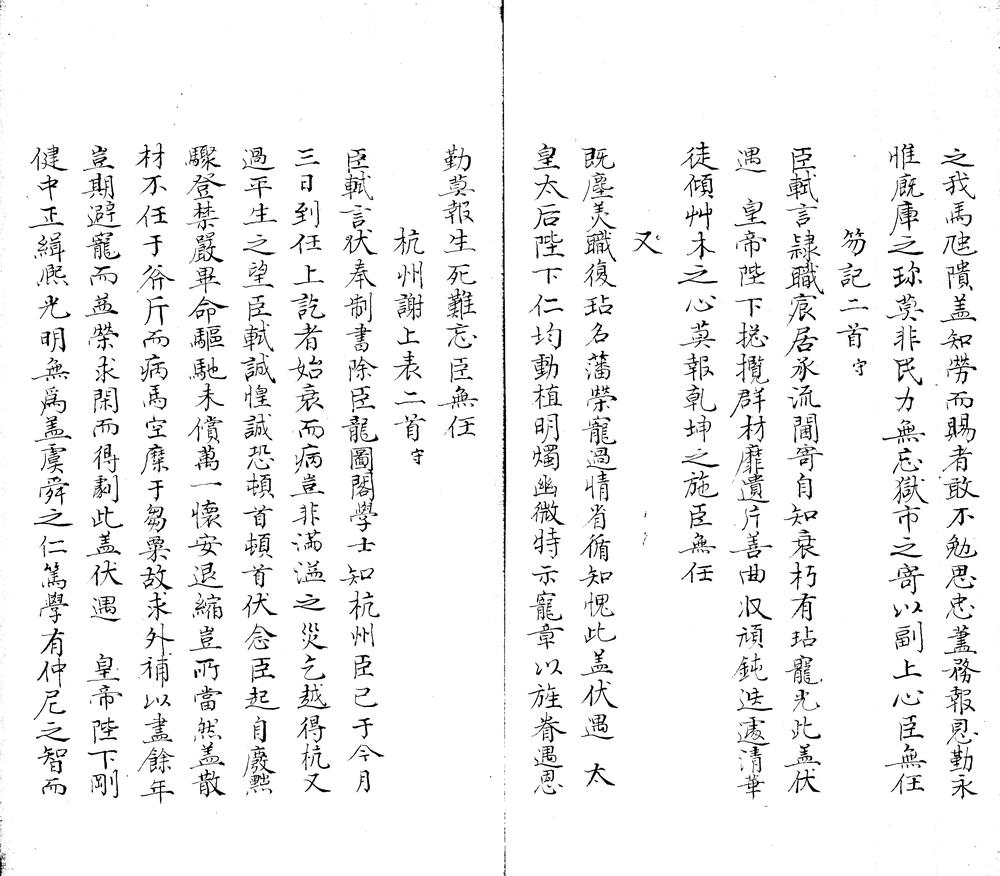 之我馬虺隤盖知勞而賜者敢不勉思忠藎務報恩勤永
惟廐庫之珎莫非民力無忘獄市之寄以副上心臣無任
笏記二首守
臣軾言隷職宸居承流閫寄自知衰朽有玷寵光此盖伏
遇　皇帝陛下揔攬群材靡遺片善曲収頑鈍迭處清華
徒傾艸木之心莫報乾坤之施臣無任
又
既塵美職復玷名藩榮寵過情省循知愧此盖伏遇　太
皇太后陛下仁均動植明燭幽微特示寵章以旌眷遇恩
勤莫報生死難忘臣無任
杭州謝上表二首守
臣軾言伏奉制書除臣龍圖閣學士知杭州臣已于今月
三日到任上訖者始衰而病豈非滿溢之災乞越得杭又
過平生之望臣軾誠惶誠恐頓首頓首伏念臣起自廢黜
驟登禁嚴畢命驅馳未償萬一懷安退縮豈所當然盖散
材不任于斧斤而病馬空糜于芻粟故求外補以盡餘年
豈期避寵而益榮求閑而得劇此盖伏遇　皇帝陛下剛
健中正緝熙光明無爲盖虞舜之仁篤學有仲尼之智而